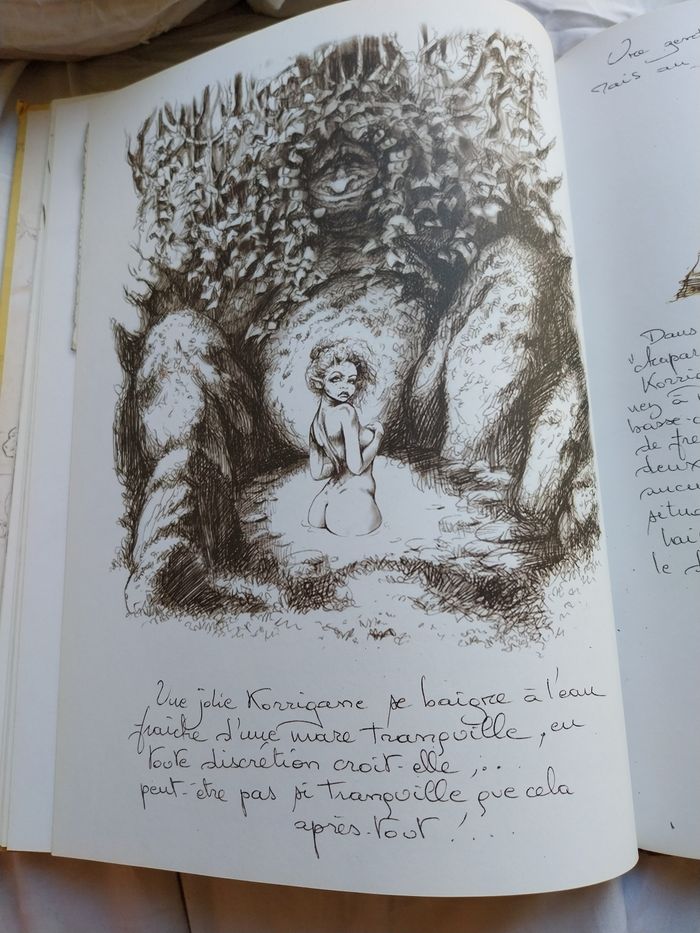 Une jolie Korrigane se baigne à l'eau
fraîche d'une mare tranquille, en
toute discrétion croit-elle ;..
peut-être pas si tranquille que cela
après-tout !....
Une
mais au
Dans
Korrig
à
basse-c
de
deux
aucun
situa
le